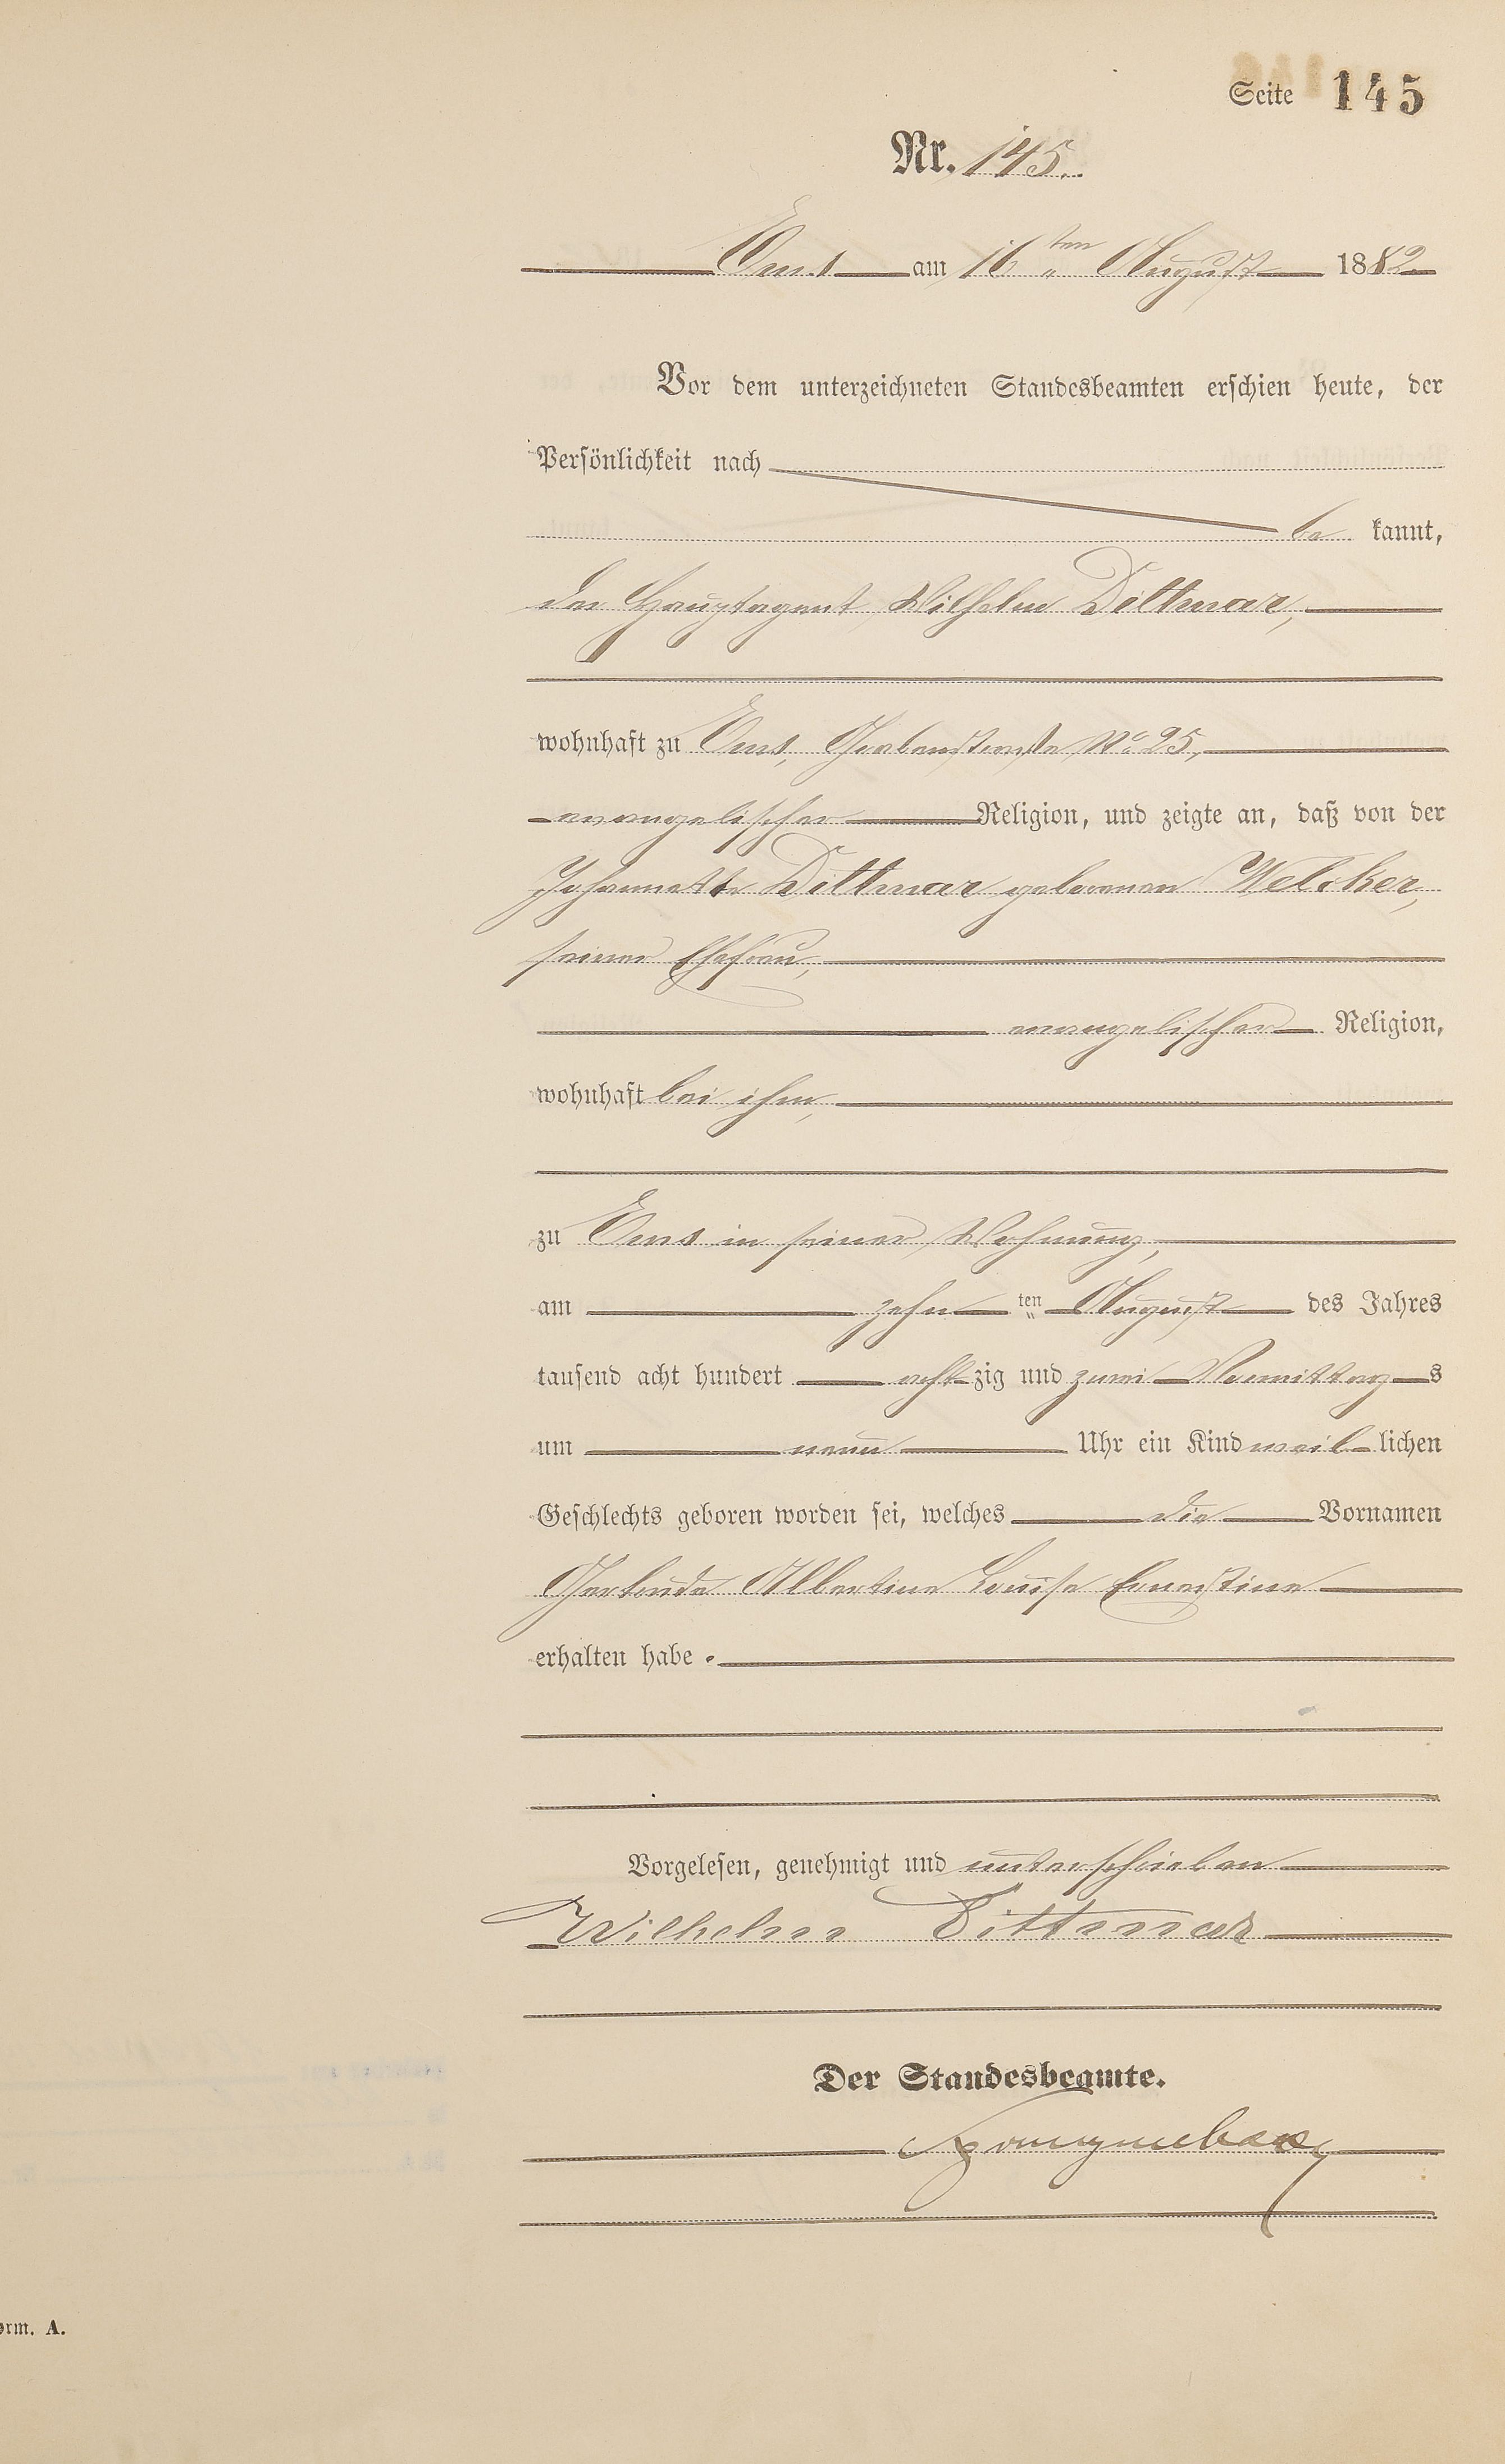 Seite 145
Nr. 145.
Ems am 16ten August 1882
Vor dem unterzeichneten Standesbeamten erschien heute, der
Persönlichkeit nach
be kannt,
der Hauptagent Wilhelm Dittmar,
wohnhaft zu Ems, Grabenstraße No 25,
evangelischer Religion, und zeigte an, daß von der
Johannette Dittmar geborenen Welcker,
seiner Ehefrau,
evangelischer Religion,
wohnhaft bei ihm,
zu Ems in seiner Wohnung,
am zehn ten August des Jahres
tausend acht hundert acht zig und zwei Vormittag s
um neun Uhr ein Kind weib lichen
Geschlechts geboren worden sei, welches die Vornamen
Gertrude Albertine Louise Ernestine
erhalten habe.
Vorgelesen, genehmigt und unterschrieben
Wilhelm Dittmar
Der Standesbeamte.
orm. A.